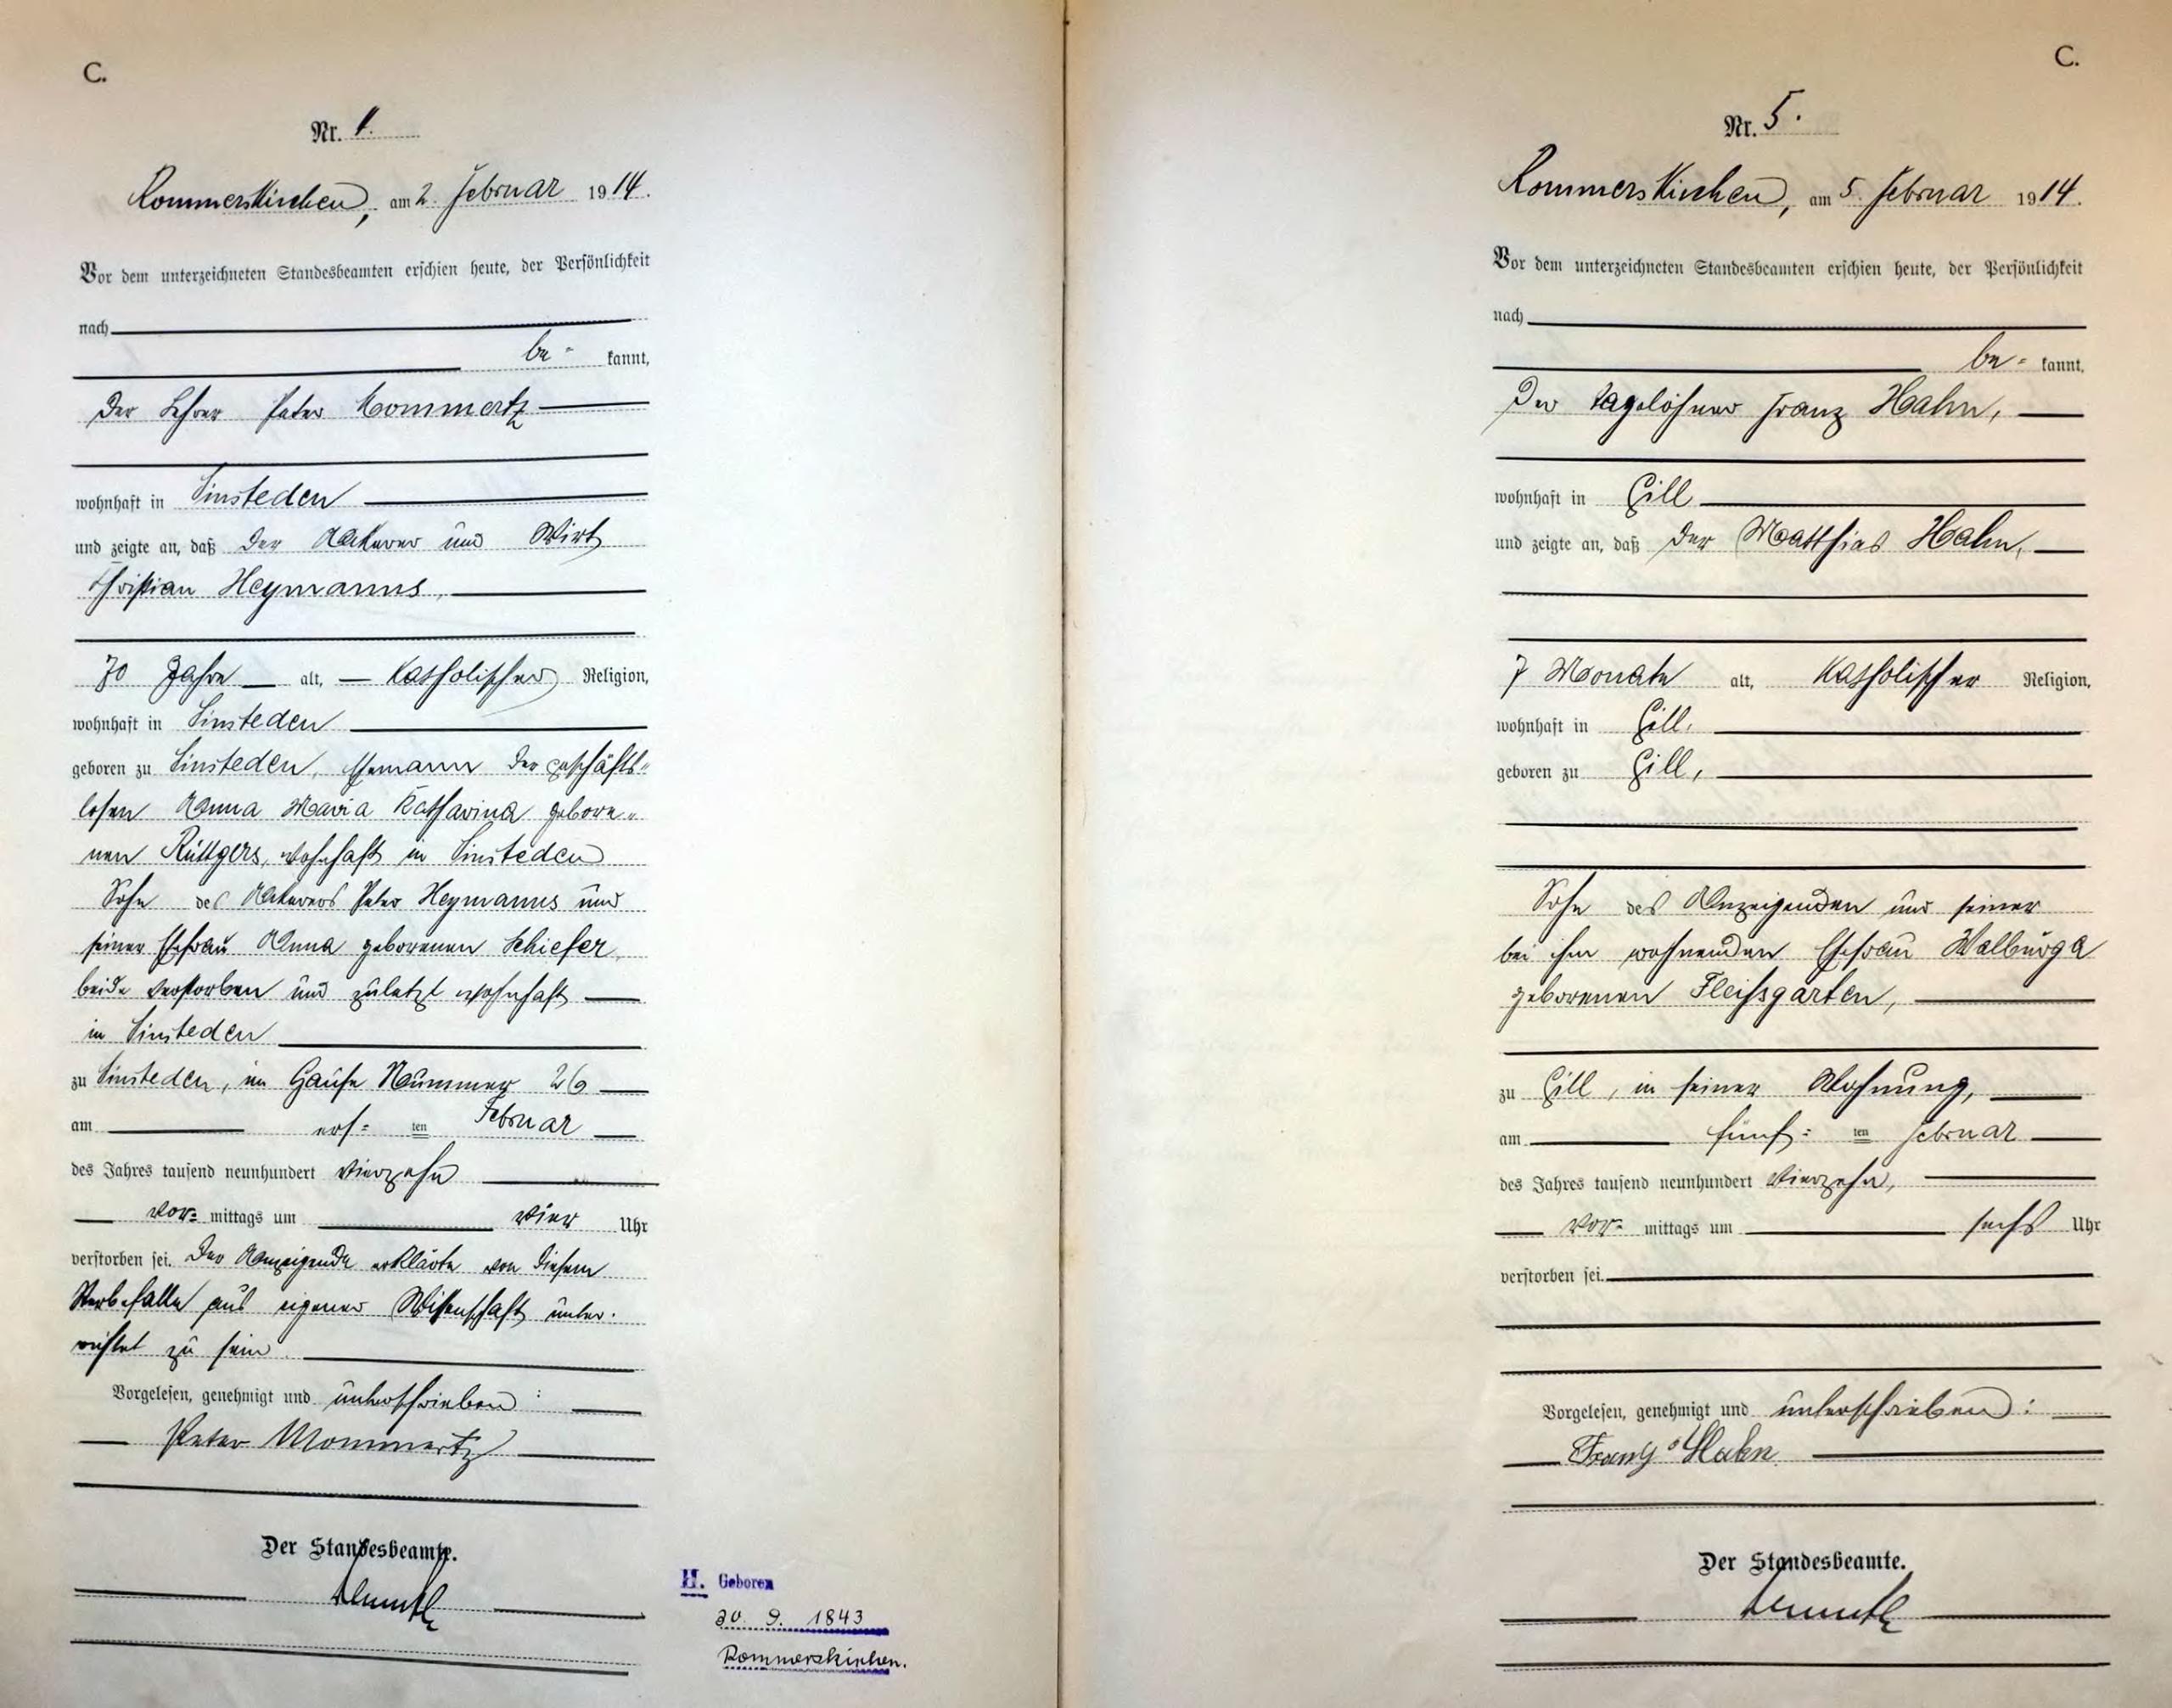 C.
Nr. 4.
Rommerskirchen, am 2. Februar 1914.
Vor dem unterzeichneten Standesbeamten erschien heute, der Persönlichkeit
nach
be- kannt,
der Lehrer Peter Mommertz
wohnhaft in Sinsteden
und zeigte an, daß der Ackerer und Wirt
Christian Heymanns,
70 Jahre alt, katholischer Religion,
wohnhaft in Sinsteden
geboren zu Sinsteden, Ehemann der geschäfts-
losen Anna Maria Katharina gebore-
nen Rüttgers, wohnhaft in Sinsteden
Sohn des Ackerers Peter Heymanns und
seiner Ehefrau Anna geborenen Schiefer,
beide verstorben und zuletzt wohnhaft
in Sinsteden
zu Sinsteden, im Hause Nummer 26
am ers- ten Februar
des Jahres tausend neunhundert vierzehn
vor- mittags um vier Uhr
verstorben sei. Der Anzeigende erklärte von diesem
Sterbefalle aus eigener Wissenschaft unter-
richtet zu sein.
Vorgelesen, genehmigt und unterschrieben:
Peter Mommertz
Der Standesbeamte.
H. Geboren
30. 9. 1843
Rommerskirchen.
C.
Nr. 5.
Rommerskirchen, am 5. Februar 1914.
Vor dem unterzeichneten Standesbeamten erschien heute, der Persönlichkeit
nach
be- kannt,
Der Tagelöhner Franz Hahn,
wohnhaft in Gill
und zeigte an, daß der Matthias Hahn,
7 Monate alt, katholischer Religion,
wohnhaft in Gill.
geboren zu Gill,
Sohn des Anzeigenden und seiner
bei ihm wohnenden Ehefrau Walburga
geborenen Fleissgarten,
zu Gill, in seiner Wohnung,
am fünf- ten Februar
des Jahres tausend neunhundert vierzehn,
vor- mittags um sechs Uhr
verstorben sei.
Vorgelesen, genehmigt und unterschrieben:
Franz Hahn
Der Standesbeamte.